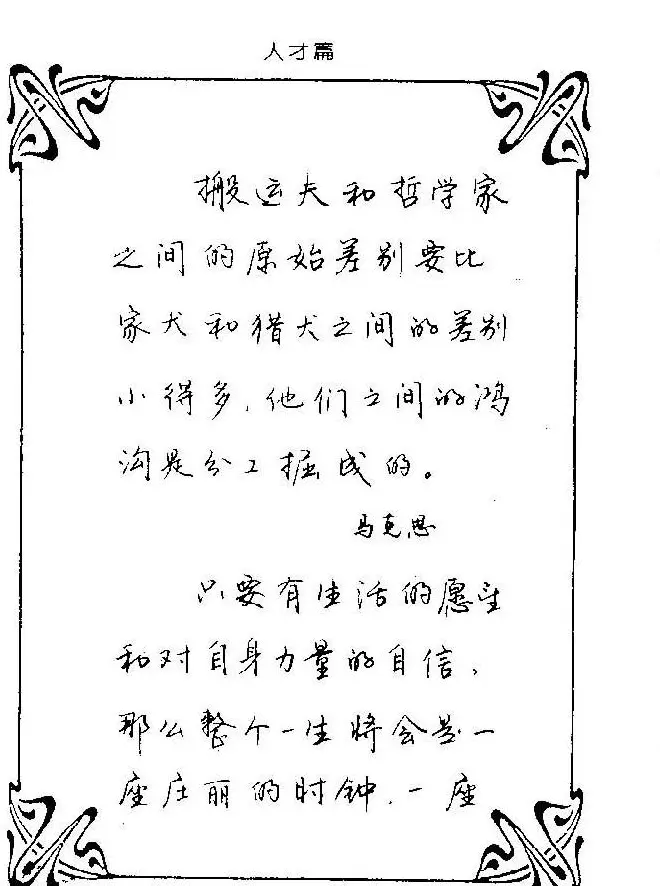 人才篇
搬运夫和哲学家
之间的原始差别要比
家犬和猎犬之间的差别
小得多,他们之间的鸿
沟是分工掘成的。
马克思
只要有生活的愿望
和对自身力量的自信,
那么整个一生将会是一
座庄丽的时钟,一座